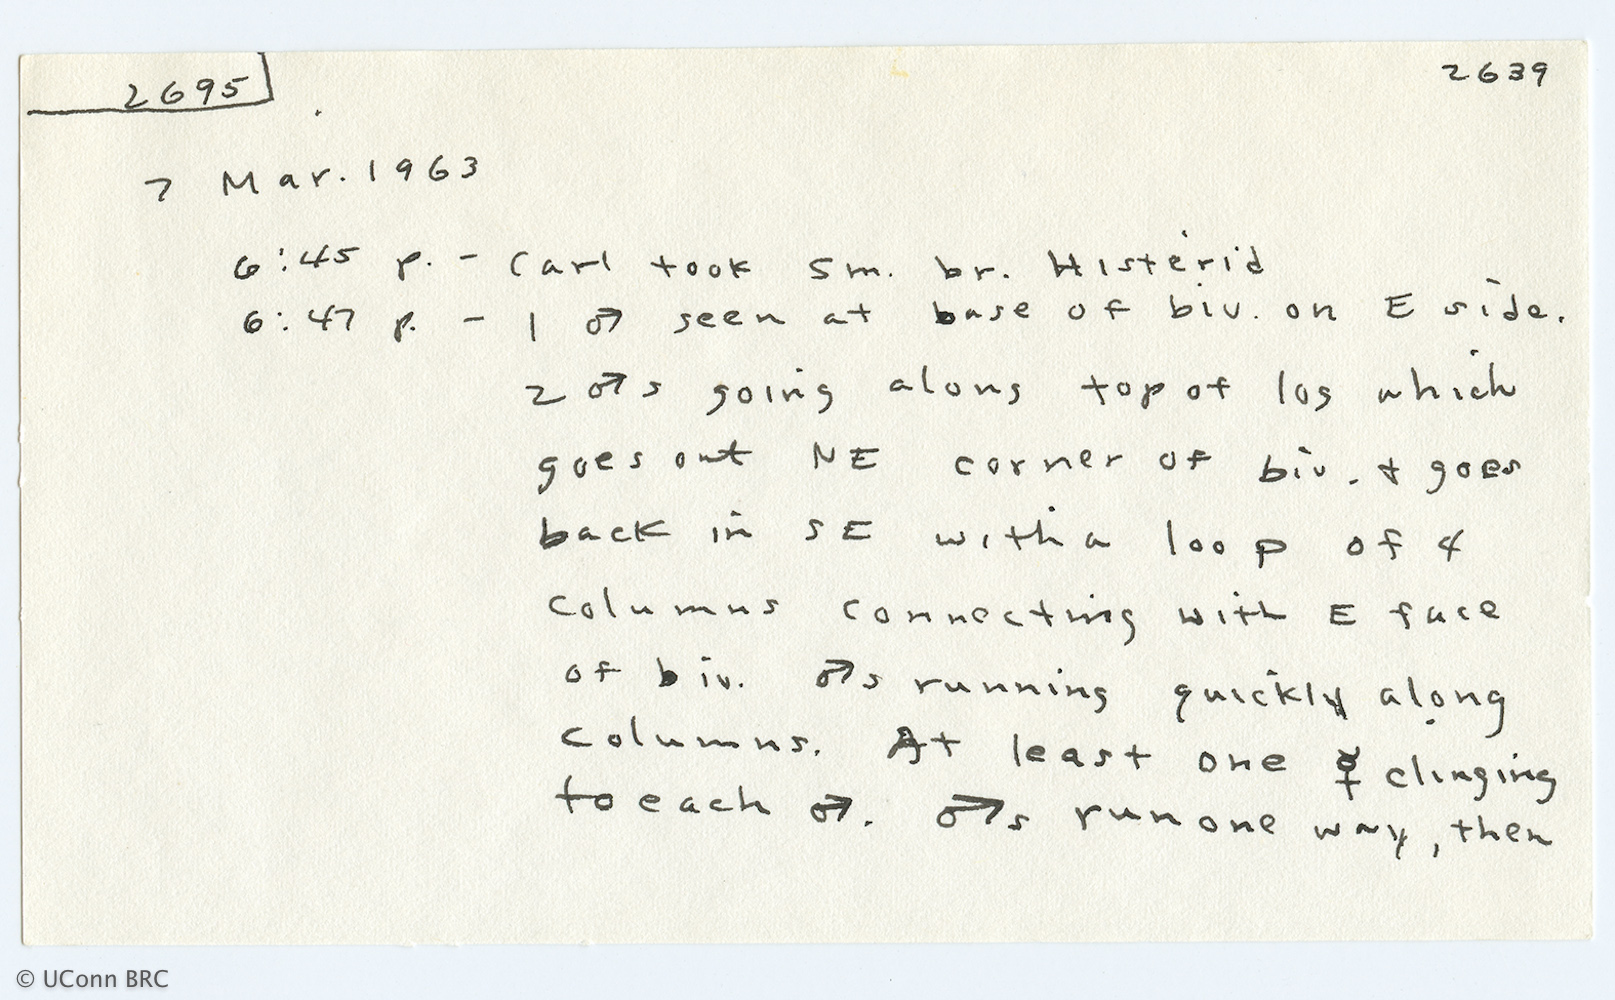 2695
2639
7 Mar. 1963
6:45 p. - Carl took sm. br. Histerid
6:47 p. - 1 ♂ seen at base of biv. on E side.
2 ♂s going along top of log which
goes out NE corner of biv. + goes
back in SE with a loop of 4
columns connecting with E face
of biv. ♂s running quickly along
columns. At least one ☿ clinging
to each ♂. ♂s run one way, then
© UConn BRC